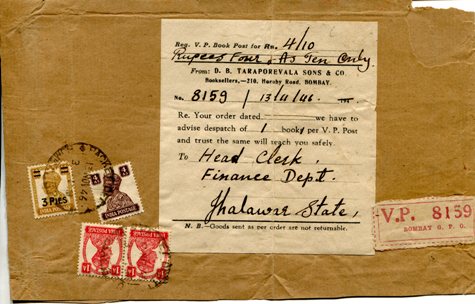 Reg. V. P. Book Post for Rs. 4/10
Rupees Four & As Ten Only
From: D. B. TARAPOREVALA SONS & CO.
Booksellers,—210, Hornby Road, BOMBAY.
No. 8159 / 13/11/46
Re. Your order dated we have to
advise despatch of 1 book per V. P. Post
and trust the same will reach you safely.
To Head Clerk,
Finance Dept.
Jhalawar State,
N. B.—Goods sent as per order are not returnable.
3 PIES
INDIA POSTAGE
V.P. 8159
BOMBAY G. P. O.